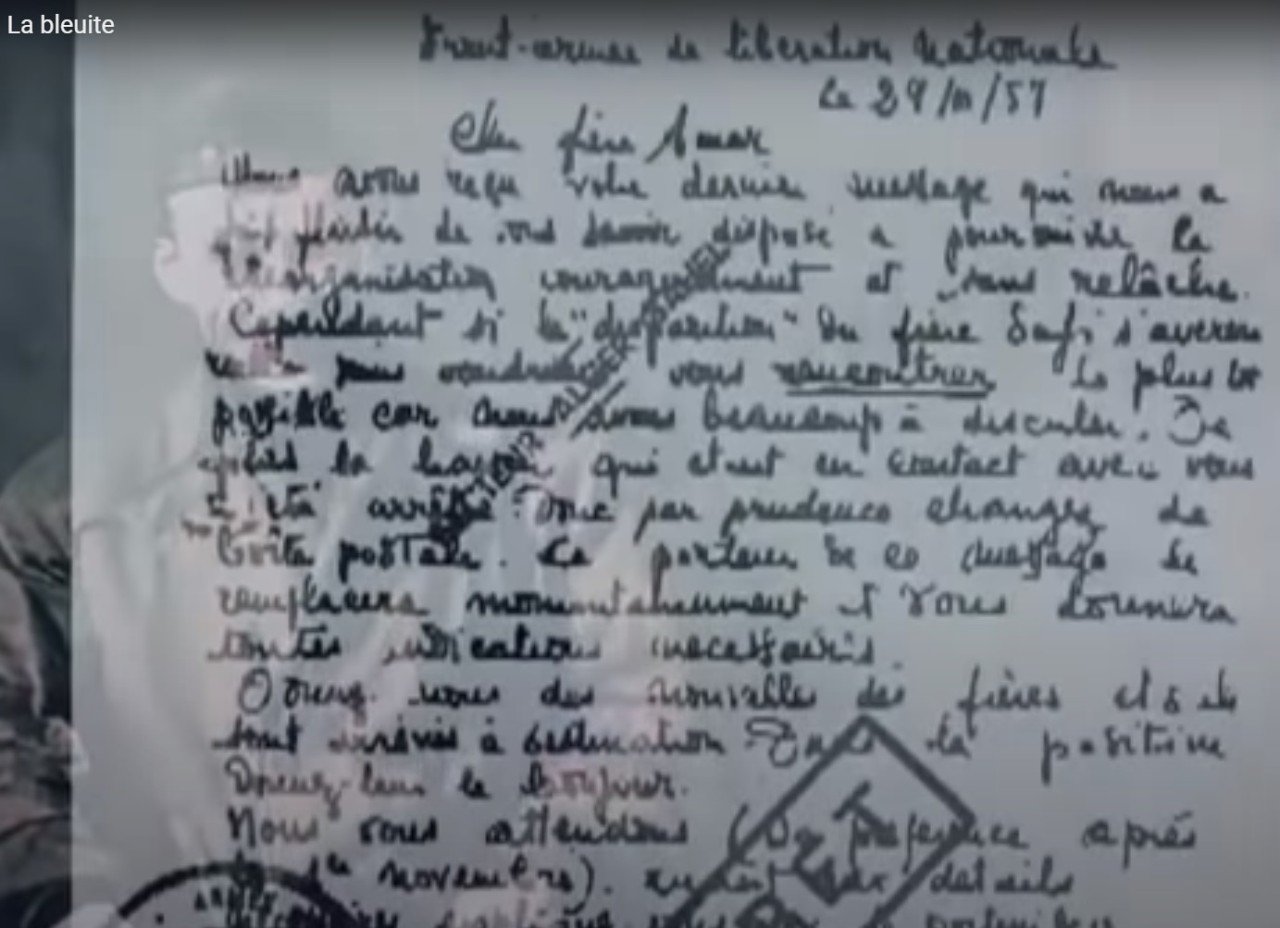 La bleuite
Front-armée de libération Nationale
Le 29/10/57
Cher frère Amar
Nous avons reçu votre dernier message qui nous a
de vous savoir disposé a poursuivre la
réorganisation courageusement et sans relâche.
Cependant si la "disparition" du frère Safi s'averera
nous voudrions vous rencontrer le plus tot
possible car nous avons beaucoup à discuter.
la qui etait en contact avec vous
a été arrêté. Donc par prudence changez de
boîte postale. Le porteur de ce message le
remplacera momentanement et vous donnera
toutes indications necessaires.
nous des nouvelles des frères et s'ils
sont arrivés à destination. Dans la positive
Donnez-leur le bonjour.
Nous vous attendons (De preference après
le 1er novembre). details
SECTEUR ALGER SAHEL